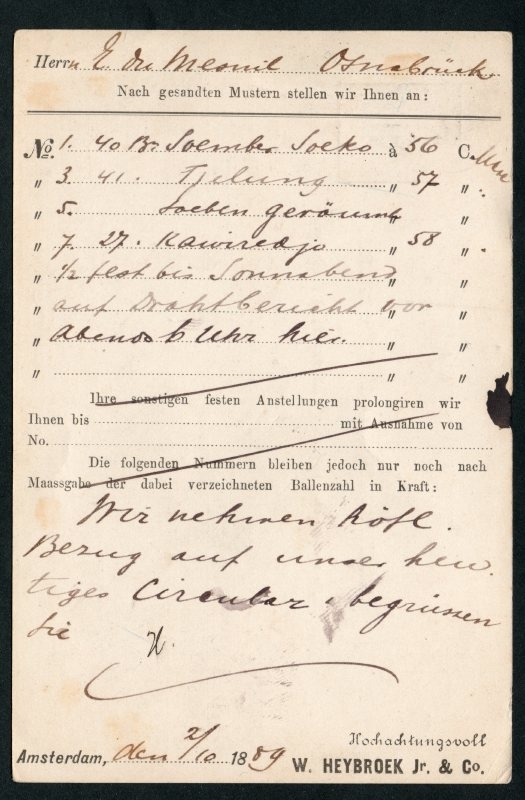 Herrn E. du Mesnil Osnabrück
Nach gesandten Mustern stellen wir Ihnen an:
No. 1. 40 Br Soember Soeko à 56 C.
„ 3. 41. Tjelung „ 57 „
„ 5. Soeben geräumt „ „
„ 7. 27. Kawiredjo „ 58 „
„ 1/2 fest bis Sonnabend „ „
„ auf Drahtbericht vor „ „
„ Abends 6 Uhr hier. „ „
„ „ „
Ihre sonstigen festen Anstellungen prolongiren wir
Ihnen bis mit Ausnahme von
No.
Die folgenden Nummern bleiben jedoch nur noch nach
Maassgabe der dabei verzeichneten Ballenzahl in Kraft:
Wir nehmen höfl.
Bezug auf unser heu
tiges Circular & begrüssen
Sie
H.
Hochachtungsvoll
Amsterdam, den 2/10 1889 W. HEYBROEK Jr. & Co.